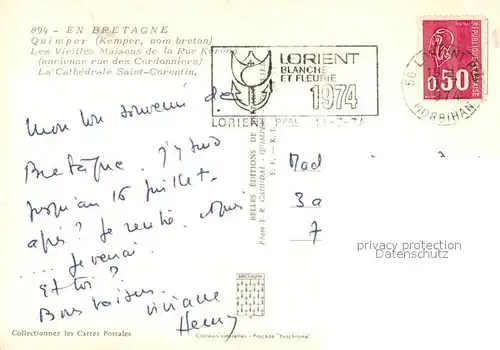 894 - EN BRETAGNE
Quimper (Kemper, nom breton)
Les Vieilles Maisons de la Rue Kéréon
(ancienne rue des Cordonniers)
La Cathédrale Saint-Corentin.
LORIENT
BLANCHE
ET FLEURIE
1974
LORIENT PPAL 13-7-74
56 LORIENT
MORBIHAN
0,50
Mon bon souvenir de
Bretagne. J'y suis
jusqu'au 16 juillet.
après? Je rentre.
.... Je venai.
et toi?
Bons baisers.
Viviane
Henry
Mad
3a
7
BELLES ÉDITIONS DE
Photo Y. R. CAOUDAL - QUIMPER
privacy protection
Datenschutz
Collectionnez les Cartes Postales
Couleurs naturelles - Procédé "Evochrome"